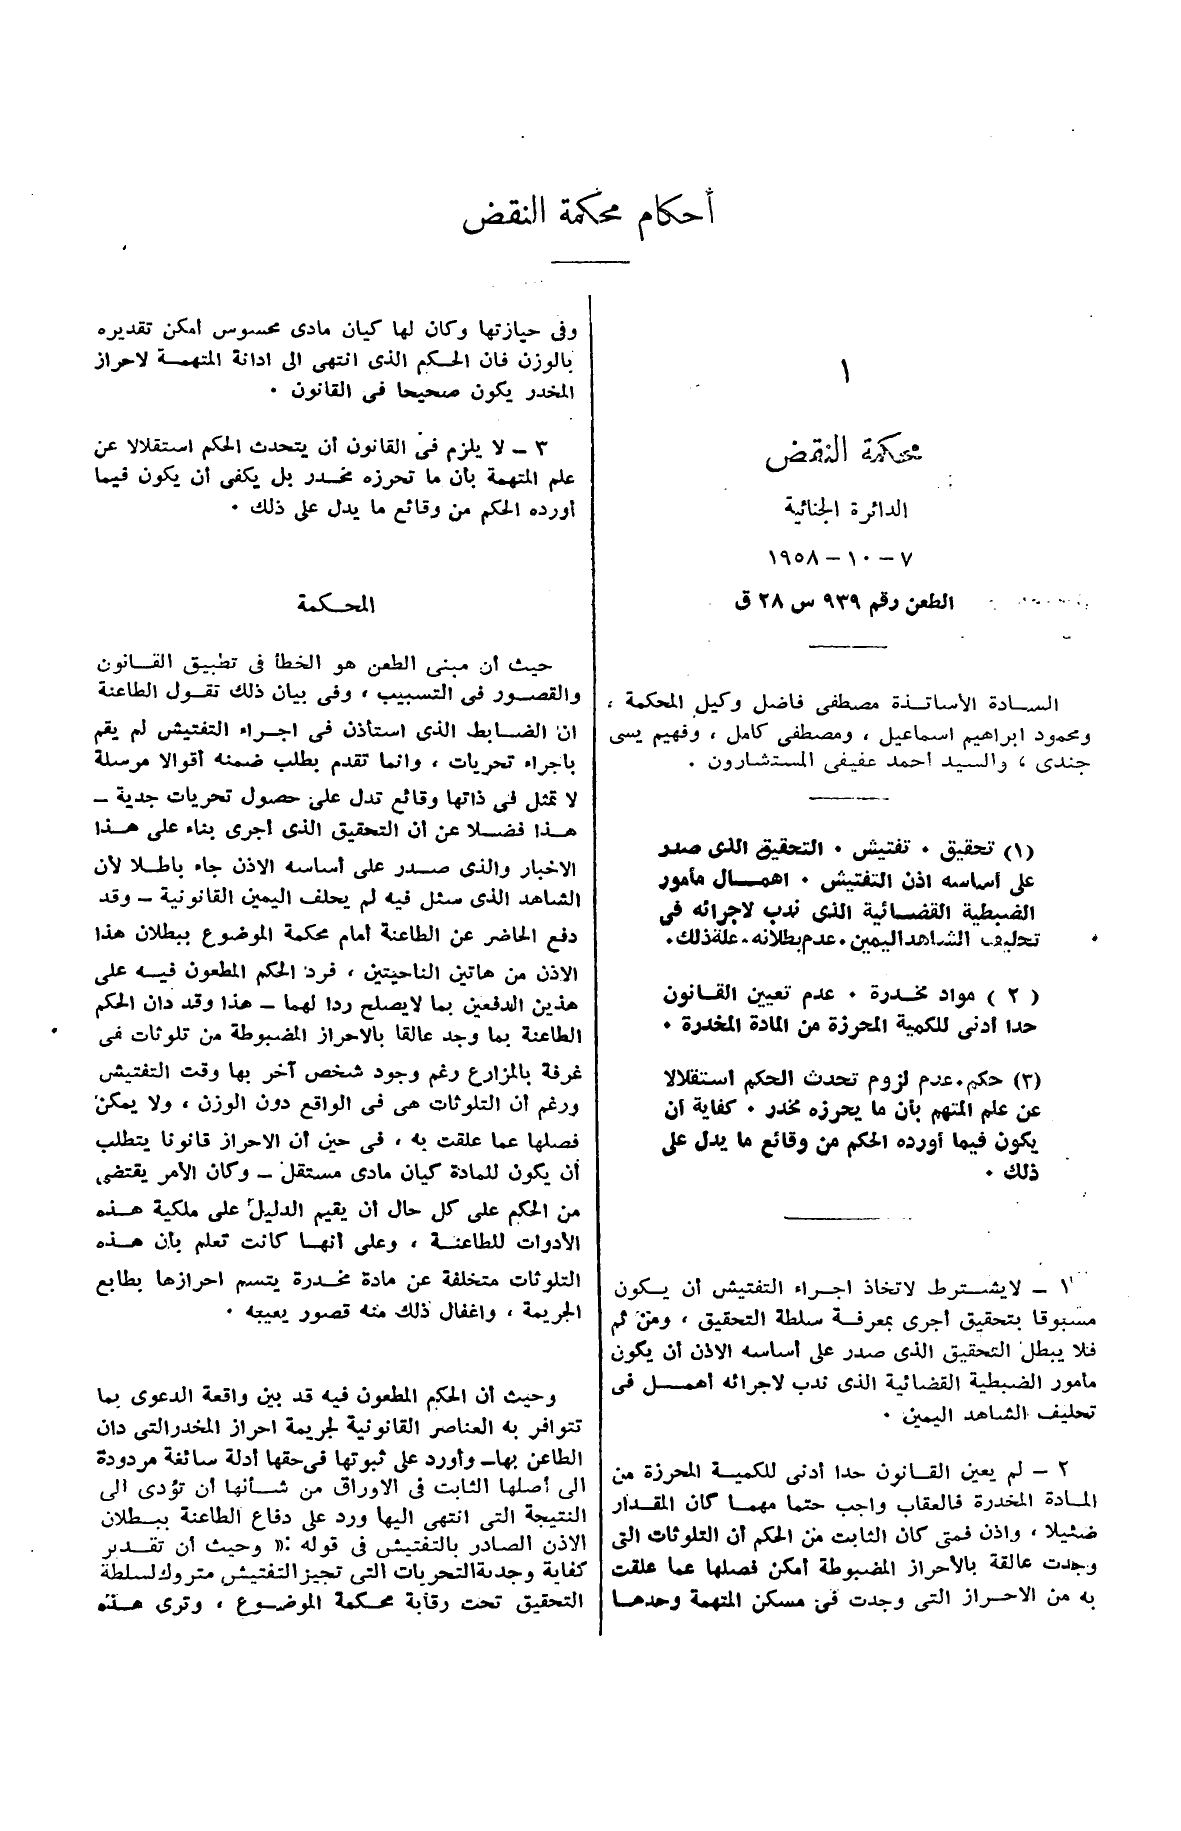 أحكام محكمة النقض
١
محكمة النقض
الدائرة الجنائية
٧ – ١٠ – ١٩٥٨
الطعن رقم ٩٣٩ س ٢٨ ق
الســادة الأساتــذة مصطفى فاضل وكيل المحكمة ،
ومحمود ابراهيم اسماعيل ، ومصطفى كامل ، وفهيم يسى
جندى ، والسيد احمد عفيفى المستشارون .
(١) تحقيق . تفتيش . التحقيق الذى صدر
على أساسه اذن التفتيش . اهمــال مأمور
الضبطية القضــائية الذى ندب لاجرائه فى
تحليف الشاهد اليمين . عدم بطلانه . علة ذلك .
( ٢ ) مواد مخــدرة . عدم تعيين القــانون
حدا أدنى للكمية المحرزة من المادة المخدرة .
(٣) حكم . عدم لزوم تحدث الحكم استقلالا
عن علم المتهم بأن ما يحرزه مخدر . كفاية أن
يكون فيما أورده الحكم من وقائع ما يدل على
ذلك .
١ – لا يشــترط لاتخاذ اجــراء التفتيش أن يــكون
مسبوقا بتحقيق أجرى بمعرفــة سلطة التحقيق ، ومن ثم
فلا يبطل التحقيق الذى صدر على أساسه الاذن أن يكون
مأمور الضبطية القضائية الذى ندب لاجرائه أهمــل فى
تحليف الشاهد اليمين .
٢ – لم يعين القــانون حدا أدنى للكميــة المحرزة من
المــادة المخدرة فالعقاب واجب حتما مهمــا كان المقــدار
ضئيلا ، واذن فمتى كان الثابت من الحكم أن التلوثات التى
وجدت عالقة بالأحراز المضبوطة أمكن فصلها عما علقت
به من الاحــراز التى وجدت فى مسكن المتهمة وحدهــا
وفى حيازتها وكان لها كيان مادى محسوس امكن تقديره
بالوزن فان الحــكم الذى انتهى الى ادانة المتهمــة لاحراز
المخدر يكون صحيحا فى القانون .
٣ – لا يلزم فى القانون أن يتحدث الحكم استقلالا عن
علم المتهمة بأن ما تحرزه مخــدر بل يكفى أن يكون فيما
أورده الحكم من وقائع ما يدل على ذلك .
المحــكمة
حيث أن مبنى الطعن هو الخطأ فى تطبيق القــانون
والقصــور فى التسبيب ، وفى بيان ذلك تقــول الطاعنة
ان الضــابط الذى استأذن فى اجــراء التفتيش لم يقم
باجراء تحريات ، وانما تقدم بطلب ضمنه أقوالا مرسلة
لا تمثل فى ذاتها وقائع تدل على حصول تحريات جدية –
هــذا فضــلا عن أن التحقيق الذى أجرى بناء على هــذا
الاخبار والذى صــدر على أساسه الاذن جاء باطــلا لأن
الشاهد الذى سئل فيه لم يحلف اليمين القانونية – وقد
دفع الحاضر عن الطاعنة أمام محكمة الموضوع ببطلان هذا
الاذن من هاتين الناحيتين ، فرد الحكم المطعون فيــه على
هذين الدفعين بما لا يصلح ردا لهما – هذا وقد دان الحكم
الطاعنة بما وجد عالقا بالاحراز المضبوطة من تلوثات فى
غرفة بالمزارع رغم وجود شخص آخر بها وقت التفتيش
ورغم أن التلوثات هى فى الواقع دون الوزن ، ولا يمكن
فصلها عما علقت به ، فى حين أن الاحراز قانونا يتطلب
أن يكون للمادة كيان مادى مستقل – وكان الأمر يقتضى
من الحكم على كل حال أن يقيم الدليل على ملكية هــذه
الأدوات للطاعنــة ، وعلى أنهــا كانت تعلم بأن هــذه
التلوثات متخلفة عن مادة مخــدرة يتسم احرازها بطابع
الجريمة ، واغفال ذلك منه قصور يعيبه .
وحيث أن الحكم المطعون فيه قد بين واقعة الدعوى بما
تتوافر به العناصر القانونية لجريمة احراز المخدر التى دان
الطاعن بها – وأورد على ثبوتها فى حقها أدلة سائغة مردودة
الى أصلها الثابت فى الاوراق من شــأنها أن تؤدى الى
النتيجة التى انتهى اليها ورد على دفاع الطاعنة ببــطلان
الاذن الصادر بالتفتيش فى قوله :« وحيث أن تقــدير
كفاية وجدية التحريات التى تجيز التفتيش متروك لسلطة
التحقيق تحت رقابة محــكمة الموضــوع ، وترى هــذه